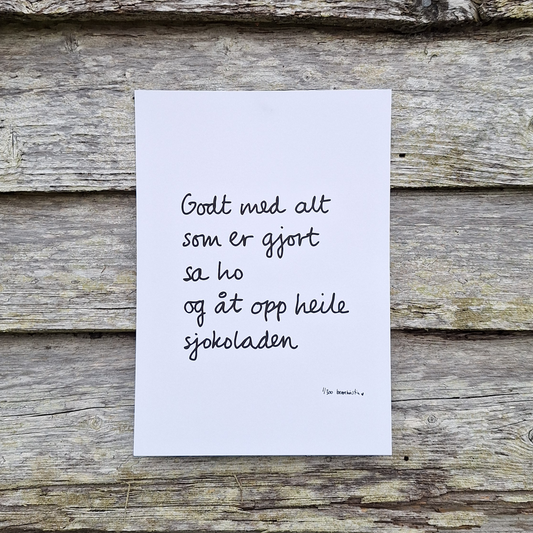 Godt med alt
som er gjort
sa ho
og åt opp heile
sjokoladen
1/100